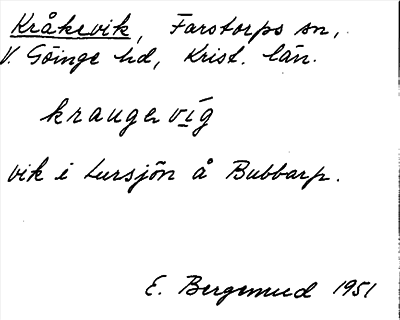 Kråkevik, Farstorps sn,
V. Göinge hd, Krist. län.
kraugevíg
vik i Lursjön å Bubbarp.
E. Bergemud 1951